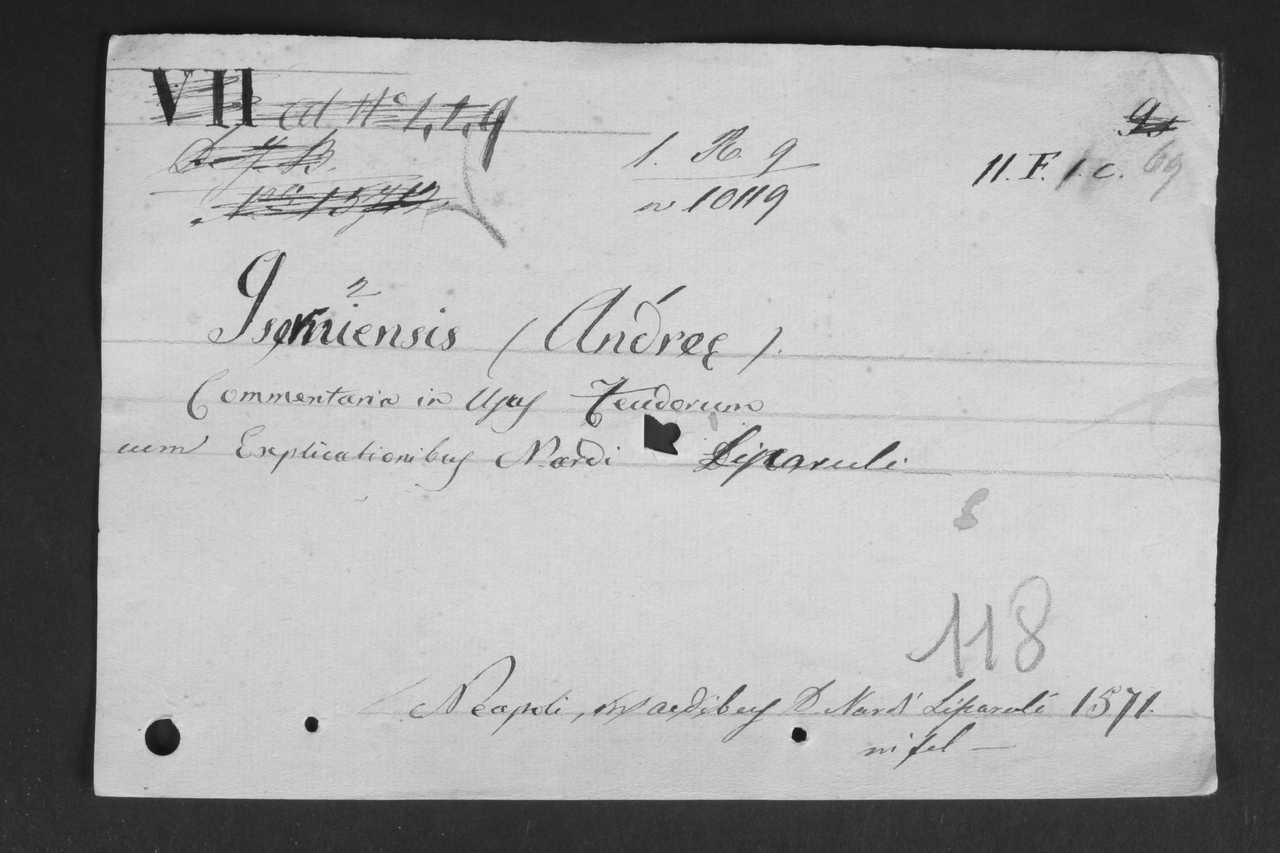 VII ad No 1,1,9
1. R. 9
11. F. 1. c. 69
n 10119
2
Iserniensis (Andreę).
Commentaria in Usus Feudorum
cum Explicationibus Nardi Liparuli
118
Neapoli, in aedibus D Nardi Liparuli 1571.
in fol